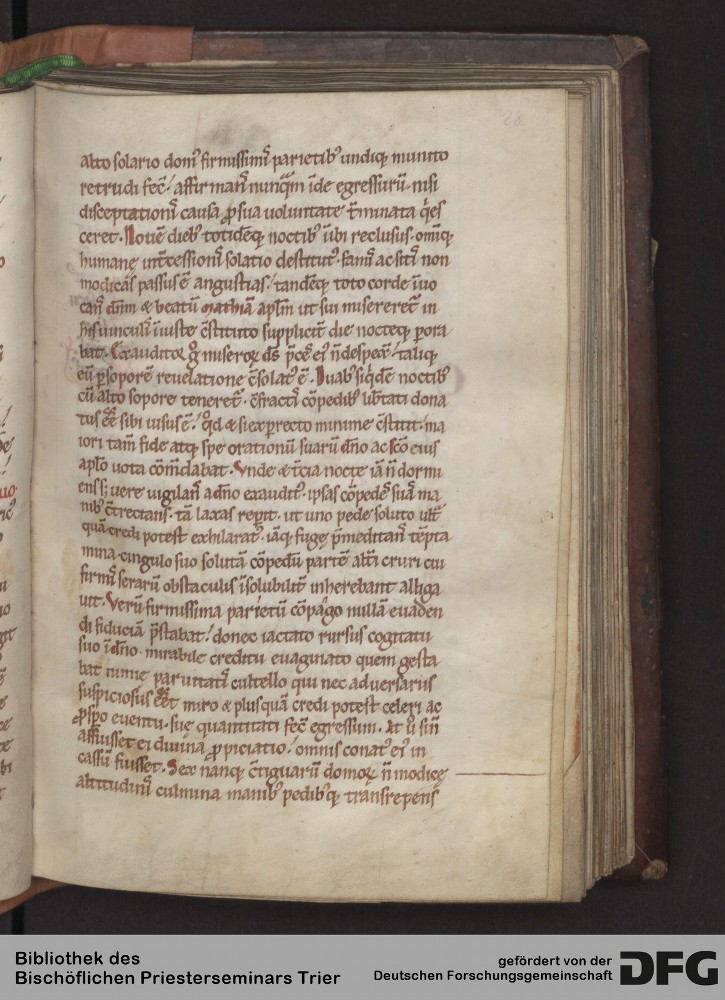 28
alto solario domꝰ firmissimis parietibꝰ undiqꝫ munito
retrudi fec̄. affirmans nunq̄m īde egressurū. nisi
disceptationis causa ꝓ sua uoluntate t̄minata q̇es
ceret. Nouē diebꝰ totidēqꝫ noctibꝰ ubi reclusus. omiqꝫ
humanę int̄cessionis solatio destitutꝰ. famis ac sitis non
modicas passus ē angustias. tandēqꝫ toto corde īuo
cans dn̄m & beatū mathiā apl̄m ut sui misereret᷑ in
his uinculis īiuste c̄stituto supplicit᷑ die nocteqꝫ ꝑora
bat. Exauditoꝝ g̊ miseroꝝ ds̄ p̄ces eiꝰ n̄ despexit. taliqꝫ
eū ꝑ soporē reuelatione c̄solatꝰ ē. Duabꝰ siqͥdē noctibꝰ
cū alto sopore teneret᷑. c̄fractis cōpedibꝰ lib̄tati dona
tus ēē sibi uisus ē. qͦd & si exꝑrecto minime c̄stitit. ma
iori tam̄ fide atqꝫ spe orationū suarū dn̄o ac sc̄o eius
apl̄o uota cōm̄dabat. Vnde & t̄cia nocte iā n̄ dormi
ens sꝫ uere uigilans a dn̄o exauditꝰ. ipsas cōpedes suis ma
nibꝰ c̄trectans. tā laxas rep̄it. ut uno pede soluto ult᷑
quā credi potest exhilaratꝰ. iāqꝫ fugę p̄meditans tēpta
mina. cingulo suo solutā cōpedū partē alt᷑i cruri cui
firmis serarū obstaculis īsolubilit᷑ inherebant alliga
uit. Verū firmissima parietū cōpago nullā euaden
di fiduciā p̄stabat. donec iactato rursus cogitatu
suo ī dn̄o. mirabile creditu euaginato quem gesta
bat mirę paruitatis cultello qui nec aduersariis
suspiciosus ēēt miro & plusquā credi potest celeri ac
ꝓspo euentu. suę quantitati fec̄ egressum. At u̇ sin̄
affuisset ei diuina ꝓpiciatio. omnis conatꝰ eiꝰ in
cassū fuisset. Sex nanqꝫ c̄tiguarū domoꝝ n̄ modicę
altitudinis culmina manibꝰ pedibꝰqꝫ transrepens
Bibliothek des
Bischöflichen Priesterseminars Trier
gefördert von der
Deutschen Forschungsgemeinschaft
DFG